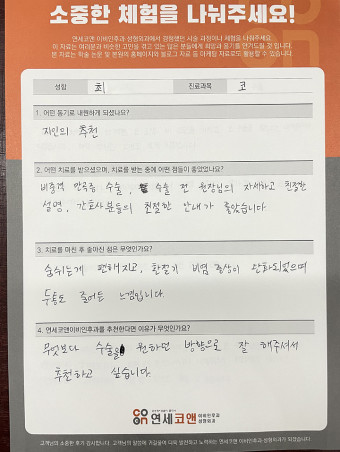 소중한 체험을 나눠주세요!
연세코앤 이비인후과 성형외과에서 경험했던 시술 과정이나 체험을 나눠주세요
이 자료는 여러분과 비슷한 고민을 겪고 있는 많은 분들에게 희망과 용기를 안겨드릴 것 입니다.
본 자료는 학술 논문 및 본원의 홈페이지와 블로그 자료 등 마케팅 자료로도 활용될 수 있습니다.
성함 최 진료과목 코
1. 어떤 동기로 내원하게 되셨나요?
지인의 추천
2. 어떤 치료를 받으셨으며, 치료를 받는 중에 어떤 점들이 좋았었나요?
비중격 만곡증 수술, 수술 전 원장님의 자세하고 친절한
설명, 간호사분들의 친절한 안내가 좋았습니다
3. 치료를 마친 후 좋아진 점은 무엇인가요?
숨쉬는게 편해지고, 환절기 비염 증상이 완화되었으며
두통도 줄어든 느낌입니다.
4. 연세코앤이비인후과를 추천한다면 이유가 무엇인가요?
무엇보다 수술을 원하던 방향으로 잘 해주셔서
추천하고 싶습니다.
연세코앤 이비인후과 성형외과
고객님의 소중한 후기 감사합니다. 고객님의 말씀에 귀 기울여 더욱 발전하고 노력하는 연세코앤 이비인후과·성형외과가 되겠습니다.